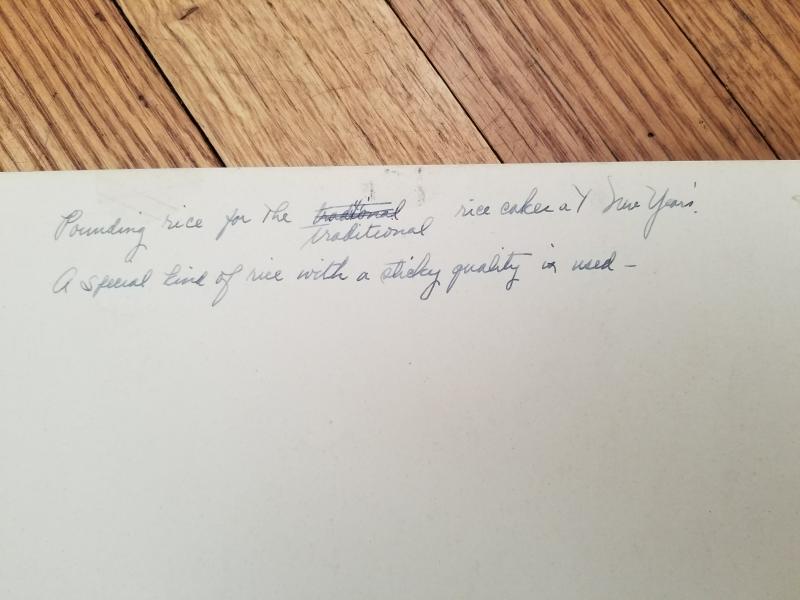 Pounding rice for the traditional rice cakes at New Year's.
A special kind of rice with a sticky quality is used -